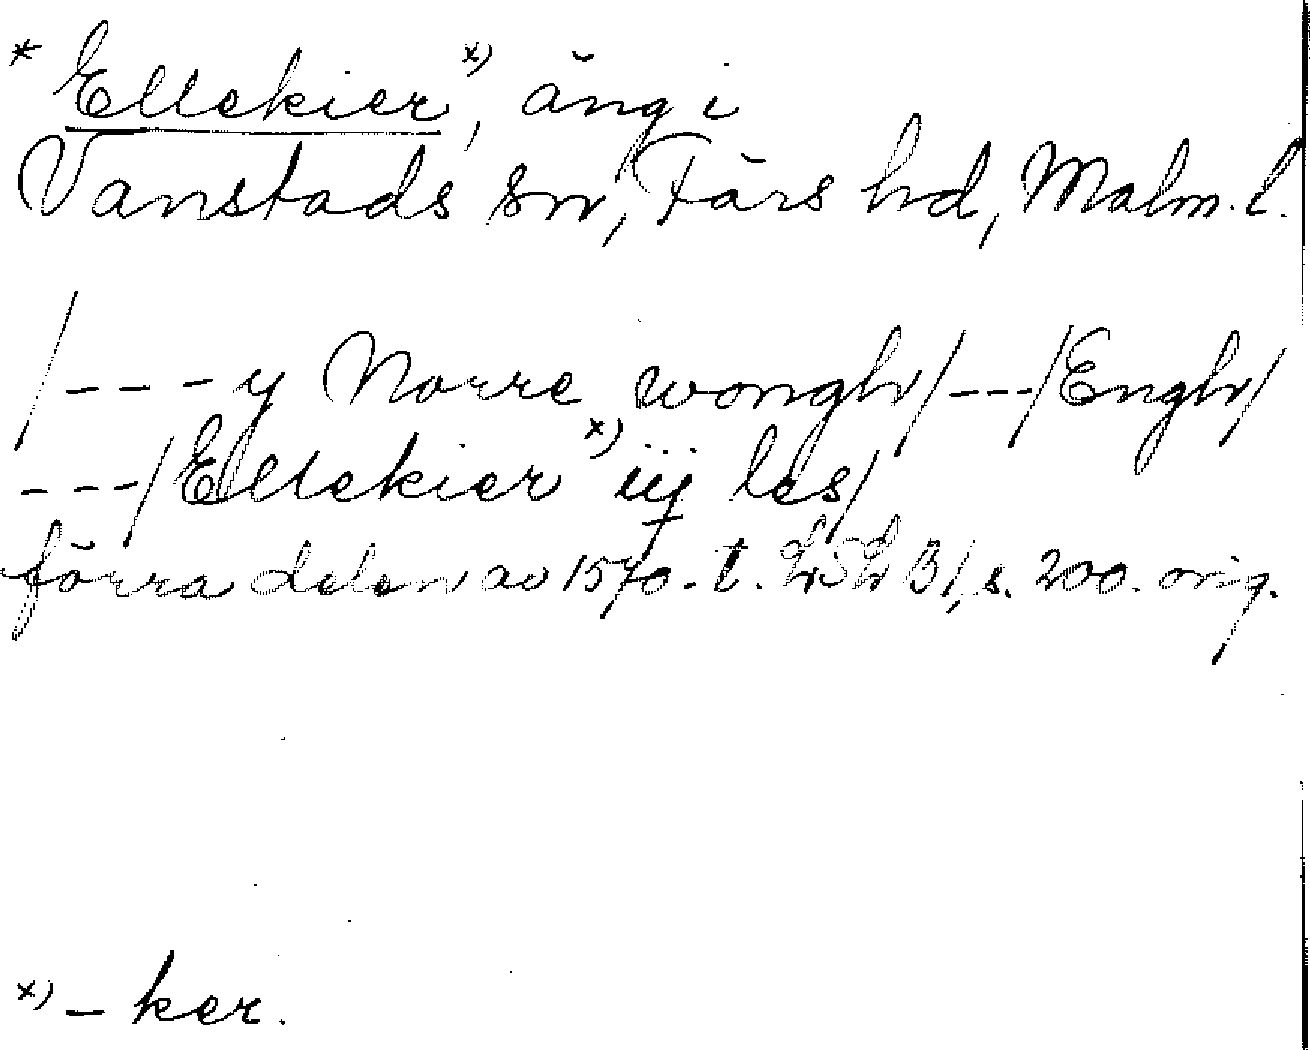 * Ellekier x), äng i
Vanstads sn, Färs hd, Malm. l.
/---y Norre wongh/---/Engh/
---/Ellekier x) iij les/
förra delen av 1570-t. LSL B1, s. 200. orig.
x) - ker.